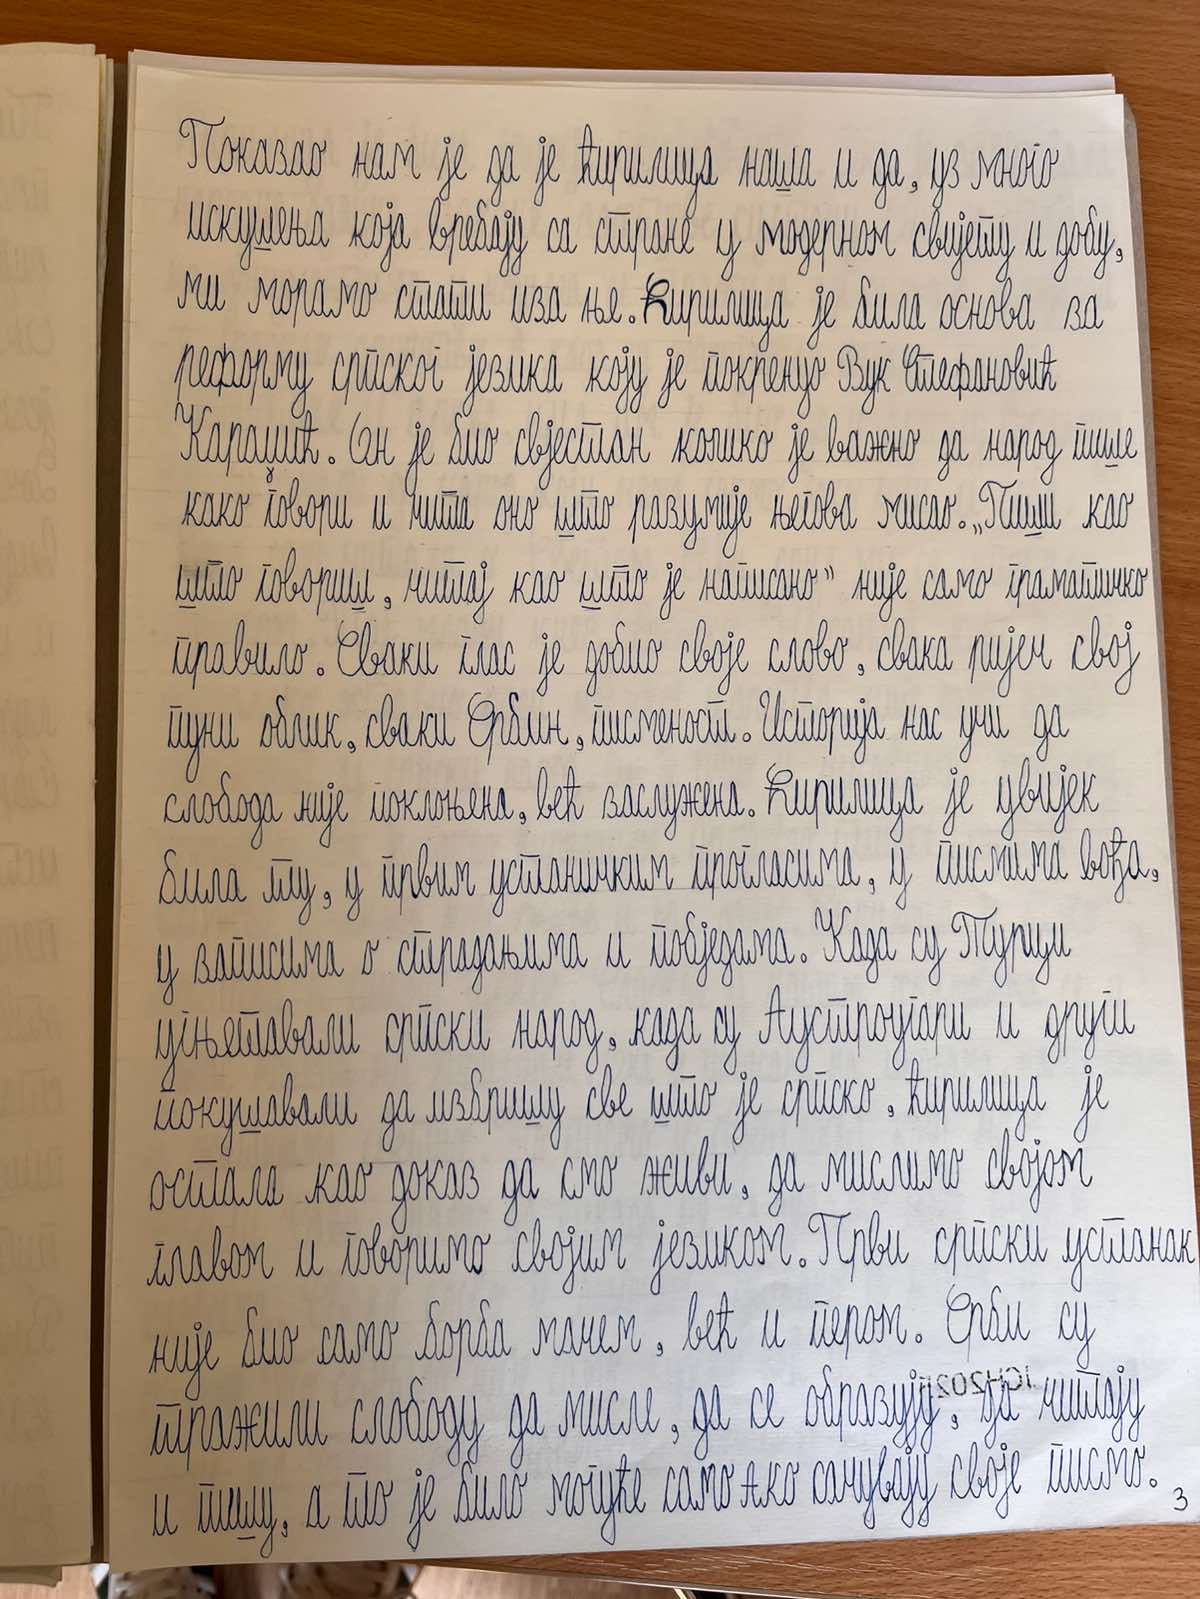 Показао нам је да је ћирилица наша и да, уз много
искушења која вребају са стране у модерном свијету и добу,
ми морамо стати иза ње. Ћирилица је била основа за
реформу српског језика коју је покренуо Вук Стефановић
Караџић. Он је био свјестан колико је важно да народ пише
како говори и чита оно што разумије његова мисао. „Пиши као
што говориш, читај као што је написано” није само граматичко
правило. Сваки глас је добио своје слово, свака ријеч свој
пуни облик, сваки Србин, писменост. Историја нас учи да
слобода није поклоњена, већ заслужена. Ћирилица је увијек
била ту, у првим устаничким прогласима, у писмима вођа,
у записима о страдањима и побједама. Када су Турци
угњетавали српски народ, када су Аустроугари и други
покушавали да избришу све што је српско, ћирилица је
остала као доказ да смо живи, да мислимо својом
главом и говоримо својим језиком. Први српски устанак
није био само борба мачем, већ и пером. Срби су
тражили слободу да мисле, да се образују, да читају
и пишу, а то је било могуће само ако сачувају своје писмо.
3